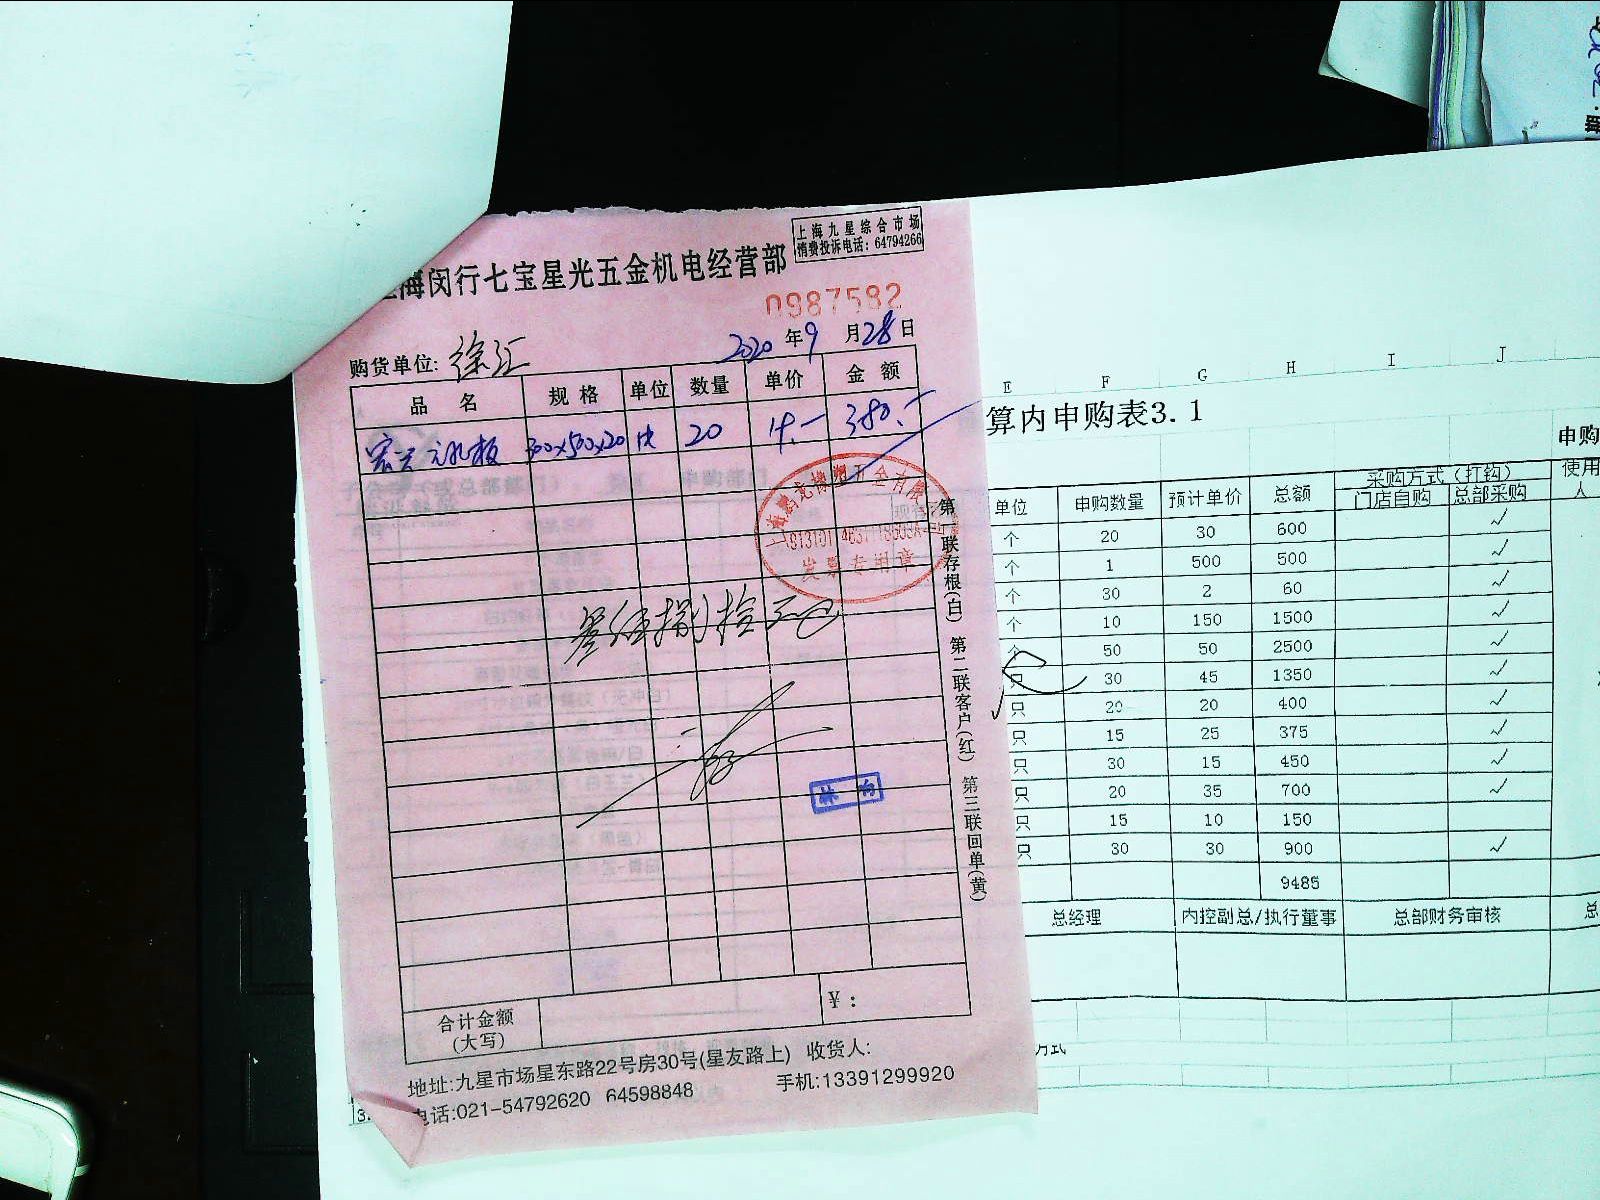 上海九星综合市场
消费投诉电话: 64794266
海闵行七宝星光五金机电经营部
0987582
购货单位: 徐汇 2020年9月28日
品名 规格 单位 数量 单价 金额
300x500x20 块 20 380.-
发票专用章
叁佰捌拾元
第一联存根(白) 第二联客户(红) 第三联回单(黄)
合计金额
(大写)
¥:
地址:九星市场星东路22号房30号(星友路上) 收货人:
电话:021-54792620 64598848 手机:13391299920
E F G H I J
算内申购表3.1
申购
单位 申购数量 预计单价 总额 采购方式(打钩) 使用
门店自购 总部采购 人
个 20 30 600 ✓
个 1 500 500 ✓
个 30 2 60 ✓
个 10 150 1500 ✓
个 50 50 2500 ✓
只 30 45 1350 ✓
只 20 20 400 ✓
只 15 25 375 ✓
只 30 15 450 ✓
只 20 35 700 ✓
只 15 10 150
只 30 30 900 ✓
9485
总经理 内控副总/执行董事 总部财务审核 总
方式
3.